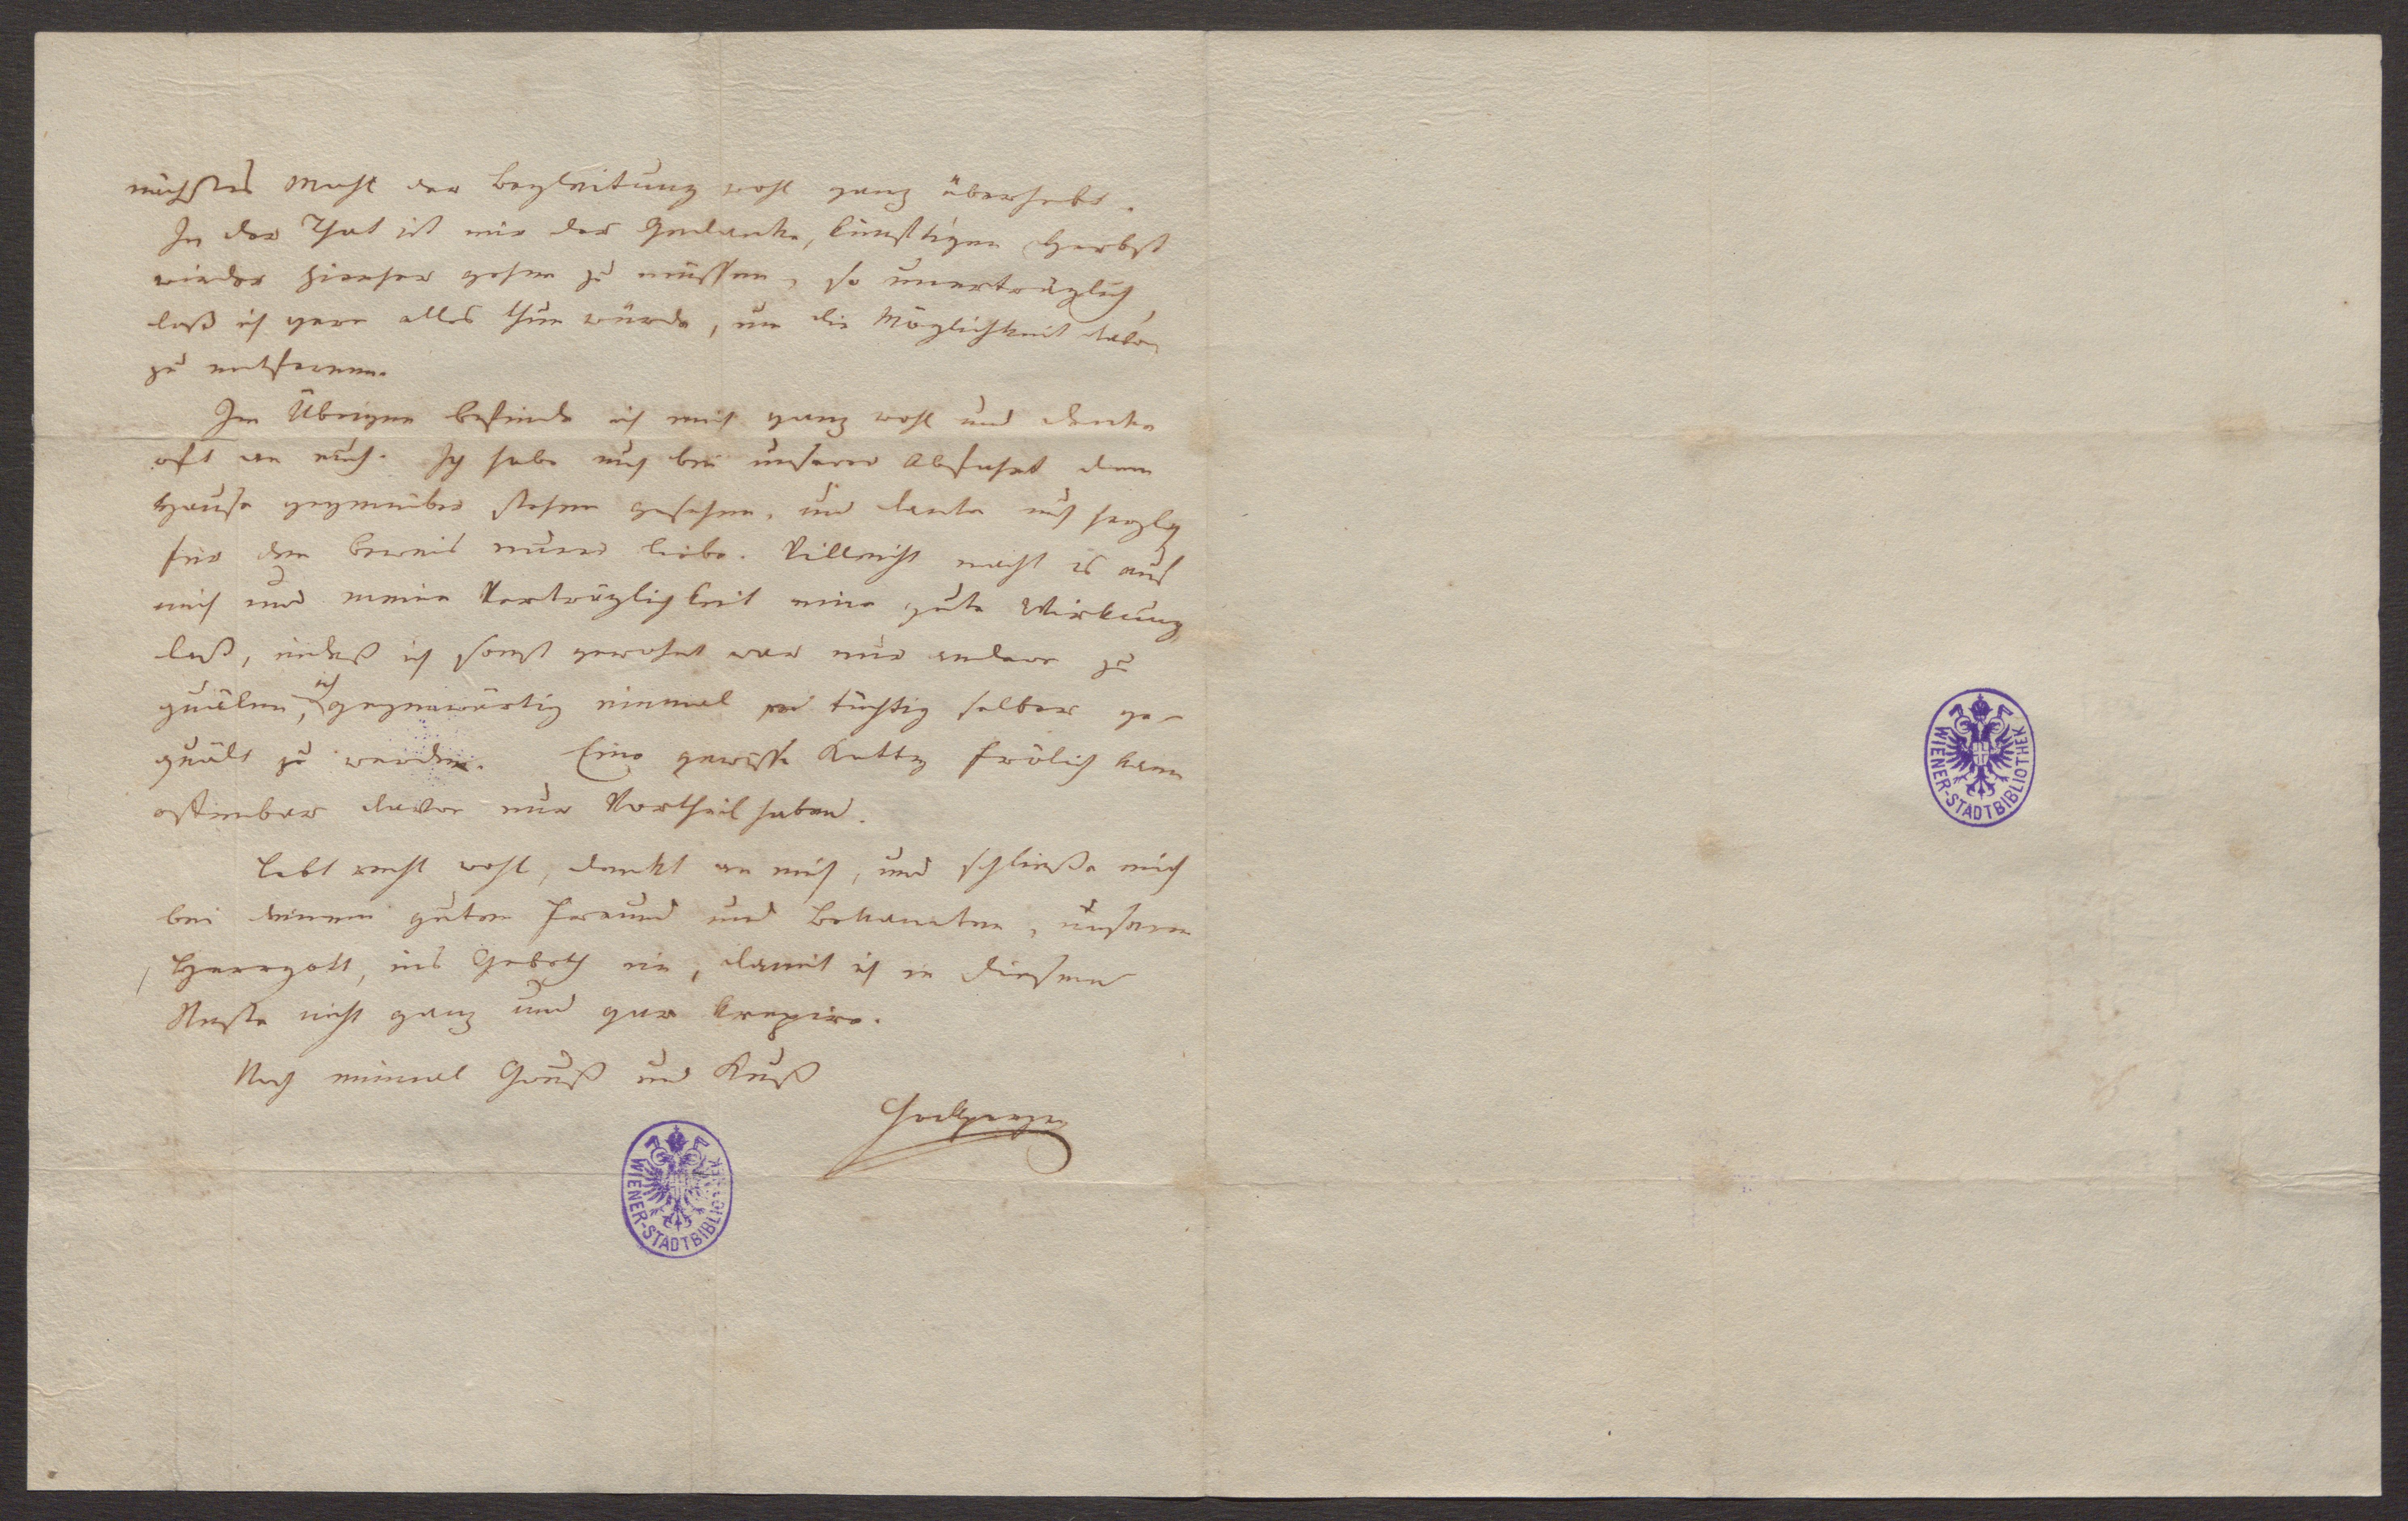 nächstes Mahl der Begleitung wohl ganz überhebt.
In der That ist mir der Gedanke, künftigen Herbst
wieder hierher gehen zu müssen, so unerträglich,
daß ich gern alles thun würde, um die Möglichkeit davon
zu entfernen.
Im Übrigen befinde ich mich ganz wohl und denke
oft an euch. Ich habe euch bei unserer Abfahrt dem
Hause gegenüber stehen gesehen, und danke euch herzlich
für den Beweis eurer Liebe. Villeicht macht es auf
mich und meine Verträglichkeit eine gute Wirkung
daß, indeß ich sonst gewohnt war nur andere zu
quälen, ich gegenwärtig einmal so tüchtig selber ge-
quält zu werden. Eine gewisse Katty Frölich kann
offenbar davon nur Vortheil haben.
Lebt recht wohl, denkt an mich, und schließe mich
bei deinem guten Freund und Bekannten, unserm
Herrgott, ins Gebeth ein, damit ich in diesem
Neste nicht ganz und gar krepire.
Noch einmal Gruß und Kuß
Grillparzer
WIENER-STADTBIBLIOTHEK
WIENER-STADTBIBLIOTHEK